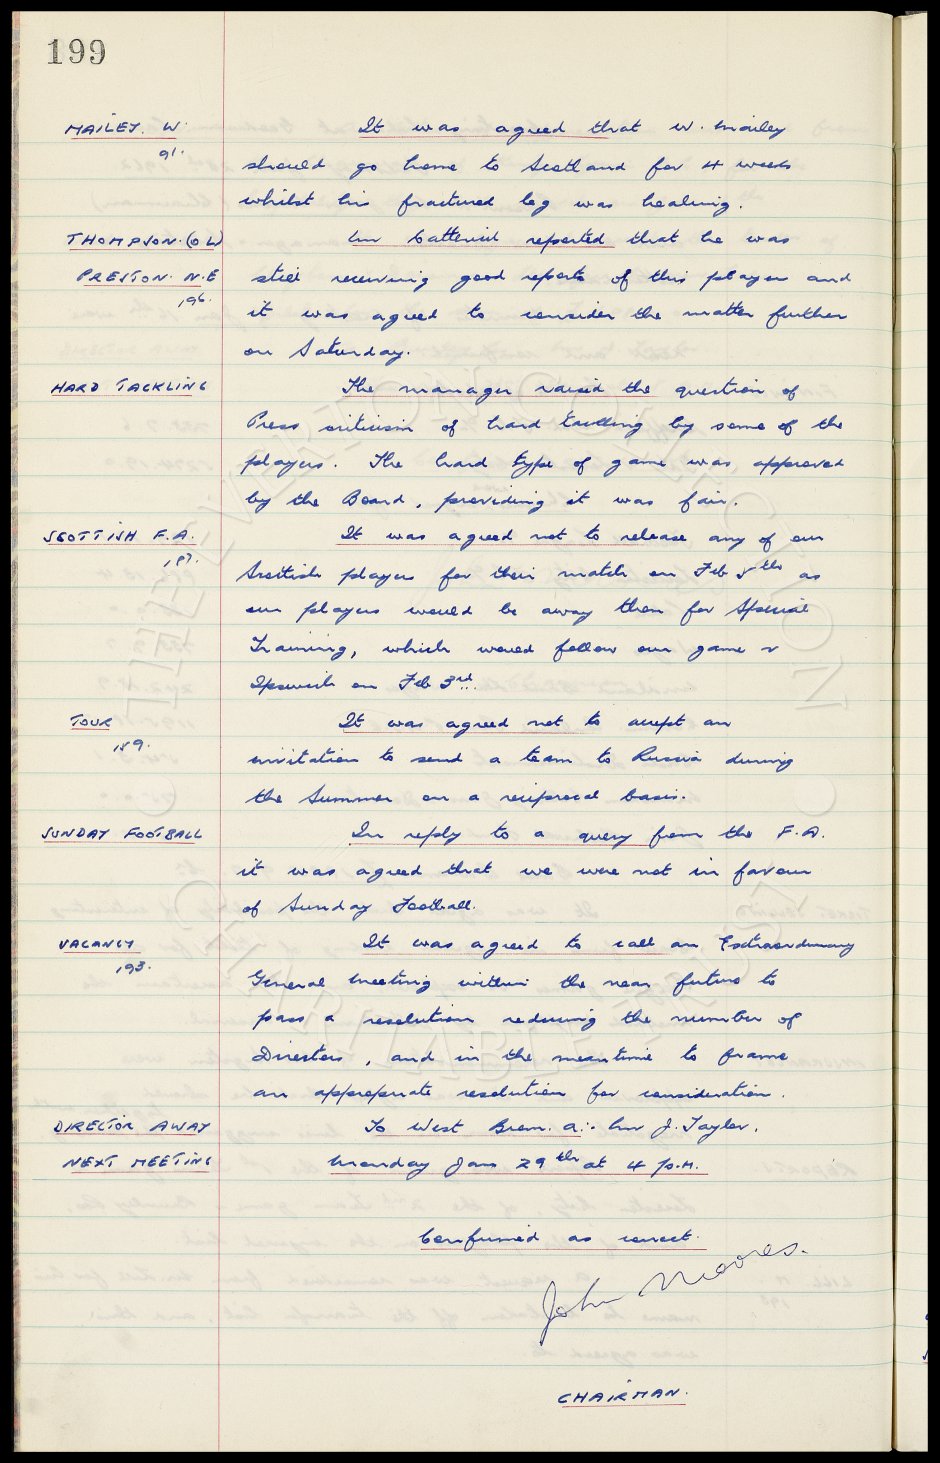 199
MAILEY. W. It was agreed that W. Mailey
91. should go home to Scotland for 4 weeks
whilst his fractured leg was healing.
THOMPSON. (O L) Mr Catterick reported that he was
PRESTON. N.E still receiving good reports of this player and
196. it was agreed to consider the matter further
on Saturday.
HARD TACKLING The manager raised the question of
Press criticism of hard tackling by some of the
players. The hard type of game was approved
by the Board, providing it was fair.
SCOTTISH F.A. It was agreed not to release any of our
187. Scottish players for their match on Feb 5th as
our players would be away then for Special
Training, which would follow our game v
Ipswich on Feb 3rd.
TOUR It was agreed not to accept an
189. invitation to send a team to Russia during
the Summer on a reciprocal basis.
SUNDAY FOOTBALL In reply to a query from the F.A.
it was agreed that we were not in favour
of Sunday Football.
VACANCY It was agreed to call an Extraordinary
193. General Meeting within the near future to
pass a resolution reducing the number of
Directors, and in the meantime to frame
an appropriate resolution for consideration.
DIRECTOR AWAY To West Brom. A:- Mr J. Taylor.
NEXT MEETING Monday Jan 29th at 4 p.m.
Confirmed as correct.
John Moores.
CHAIRMAN.